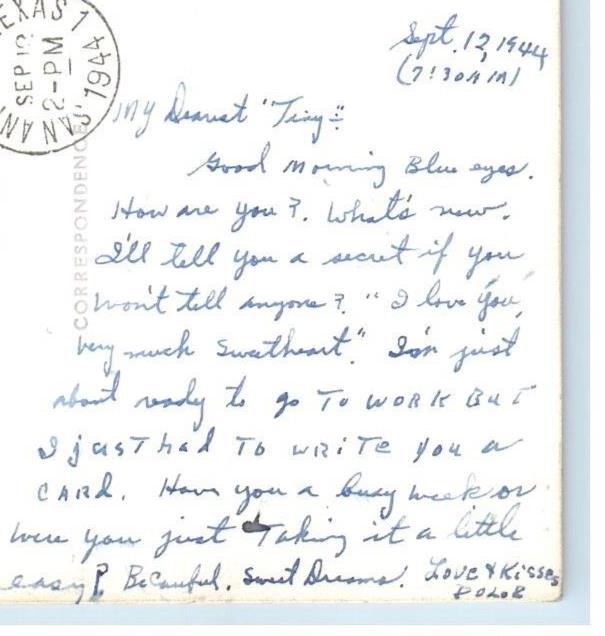 TEXAS 1
SAN AN
SEP 12
2-PM
1944
CORRESPONDENCE
Sept. 12, 1944
(7:30 A M)
My Dearest "Tiny":
Good Morning Blue eyes.
How are you?. What's new.
I'll tell you a secret if you
won't tell anyone?. "I love you,
very much Sweetheart." I'm just
about ready to go To WORK BuT
I jusT had To wRiTe you a
CARD. Have you a busy week or
were you just Taking it a little
easy?. Be Careful. Sweet Dreams. Love & Kisses